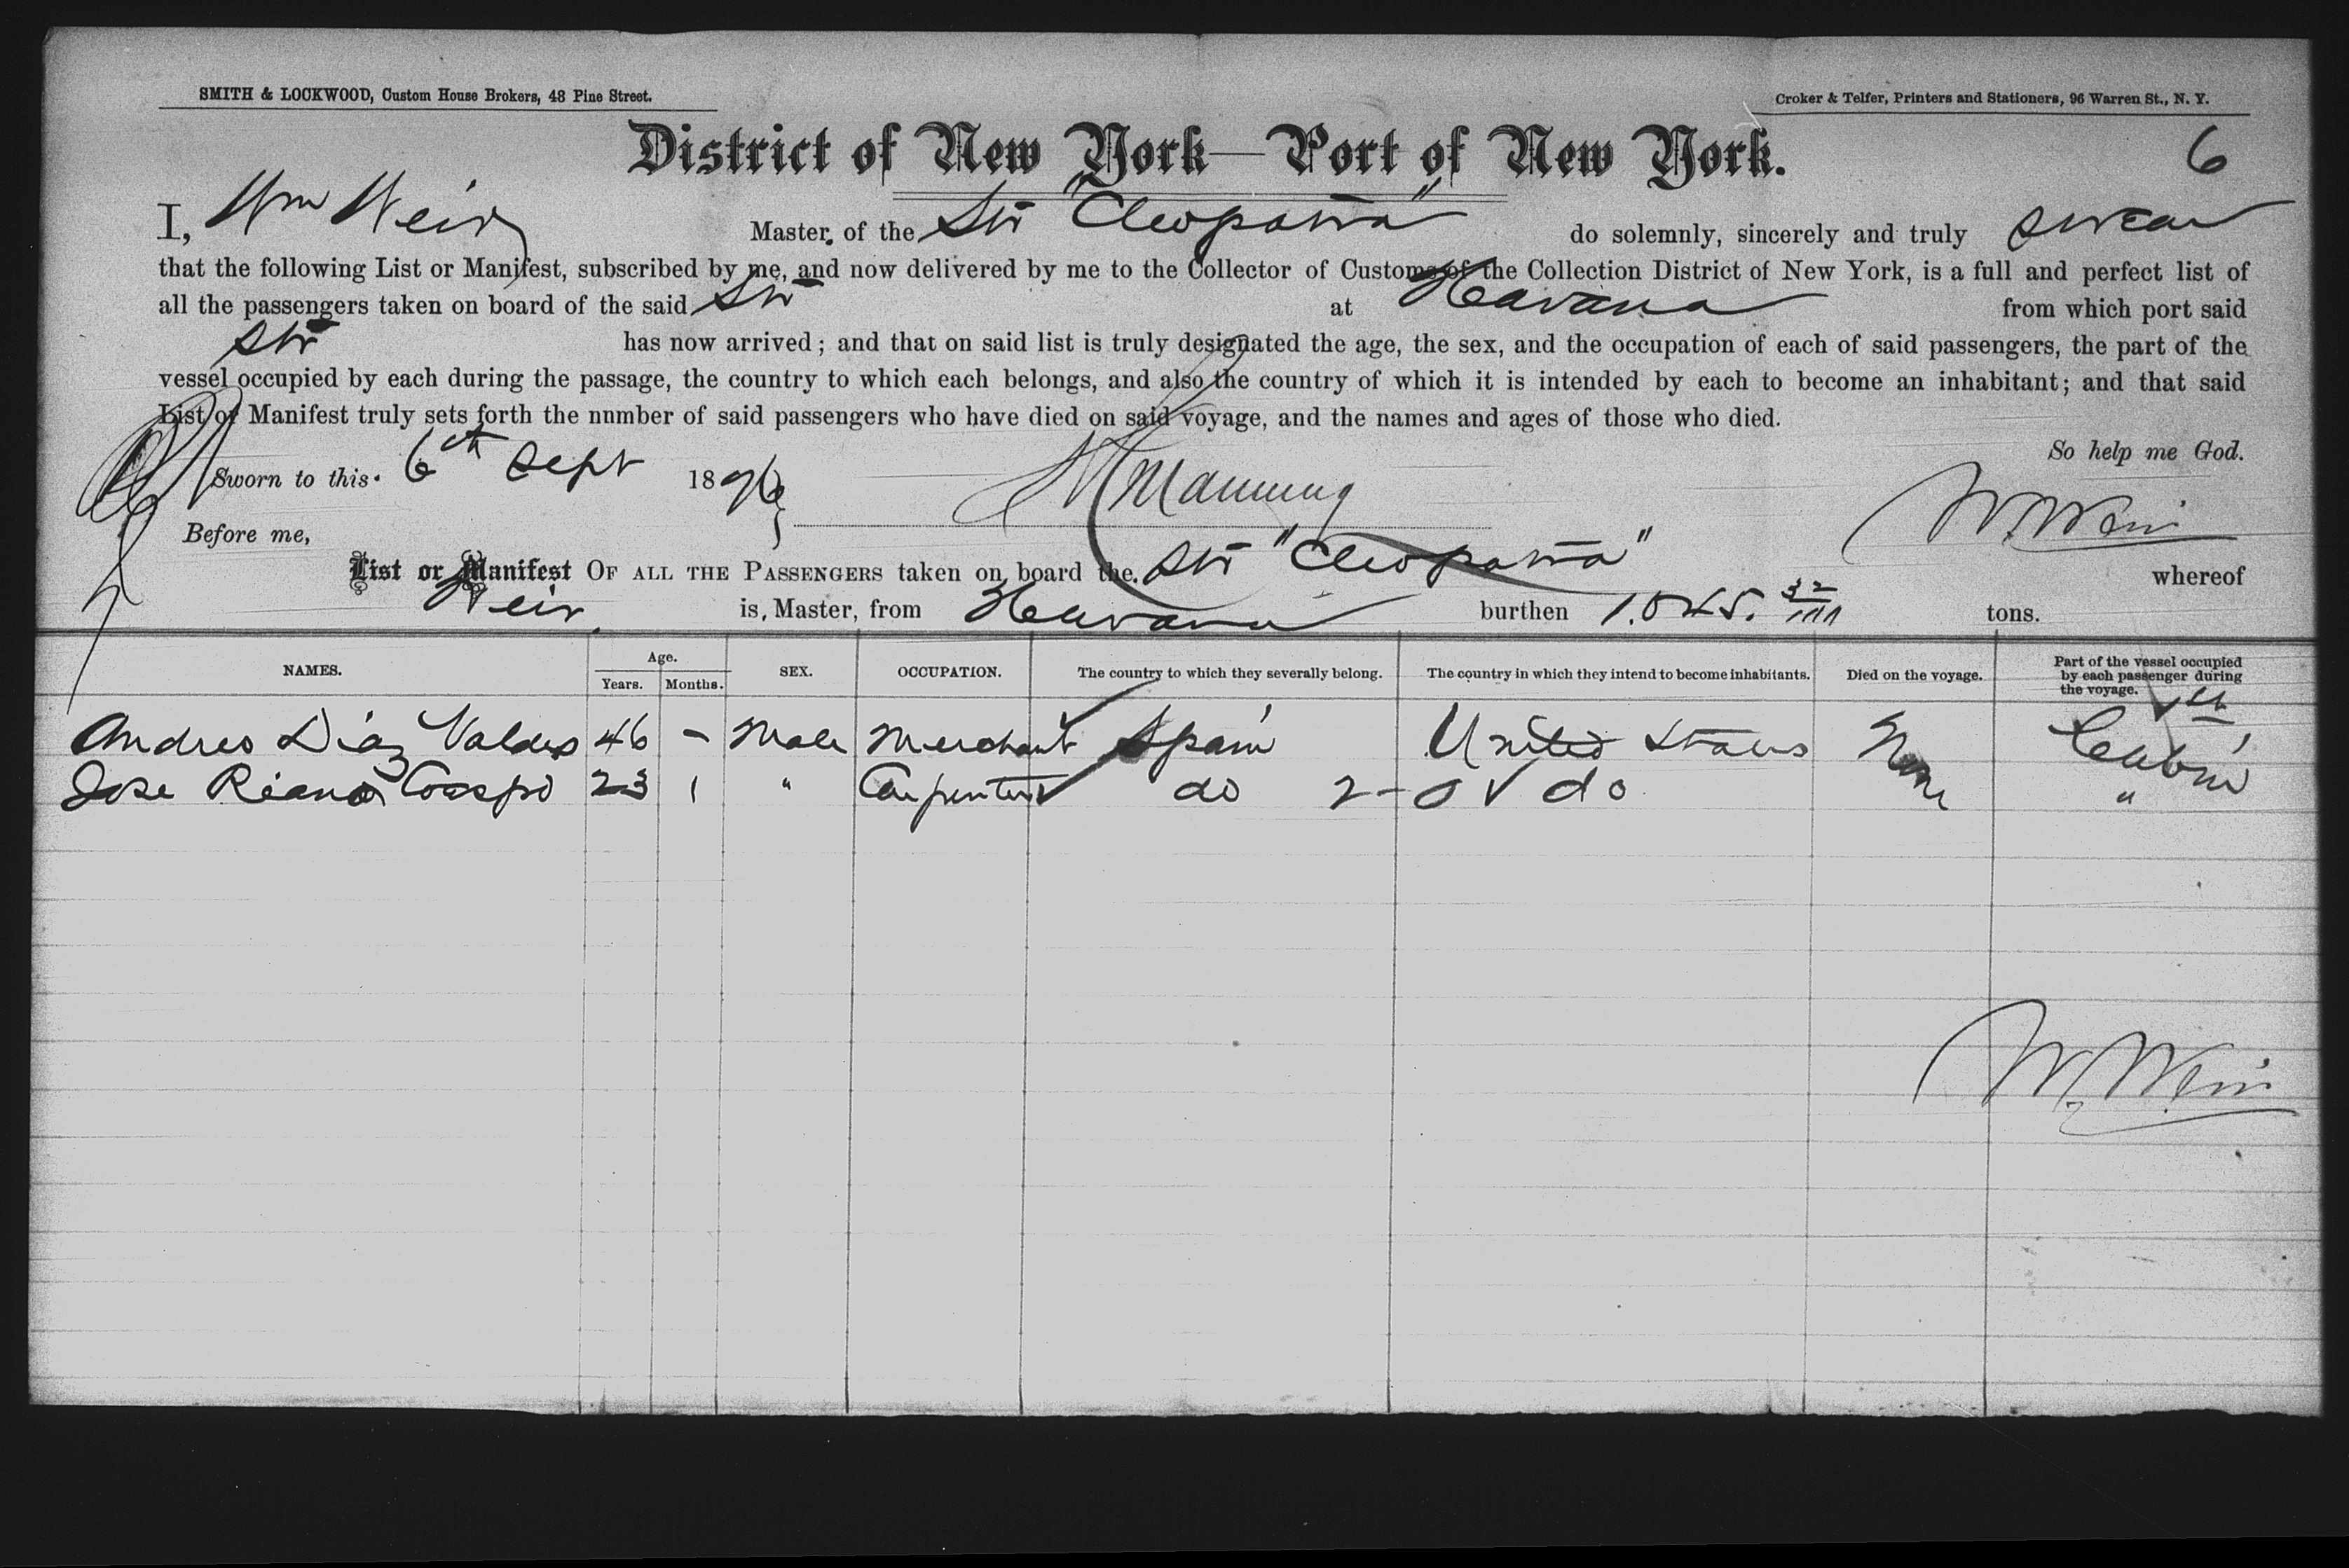 SMITH & LOCKWOOD, Custom House Brokers, 48 Pine Street.
Croker & Telfer, Printers and Stationers, 96 Warren St., N. Y.
District of New York—Port of New York.
6
I, Wm Weir Master of the Str "Cleopatra" do solemnly, sincerely and truly swear
that the following List or Manifest, subscribed by me, and now delivered by me to the Collector of Customs of the Collection District of New York, is a full and perfect list of
all the passengers taken on board of the said Str at Havana from which port said
Str has now arrived; and that on said list is truly designated the age, the sex, and the occupation of each of said passengers, the part of the
vessel occupied by each during the passage, the country to which each belongs, and also the country of which it is intended by each to become an inhabitant; and that said
List or Manifest truly sets forth the nnmber of said passengers who have died on said voyage, and the names and ages of those who died.
So help me God.
Sworn to this 6th Sept 1896 Manning W. Weir
Before me,
List or Manifest OF ALL THE PASSENGERS taken on board the Str "Cleopatra" whereof
Weir is Master, from Havana burthen 1.045. 32/100 tons.
NAMES. Age. Years. Months. SEX. OCCUPATION. The country to which they severally belong. The country in which they intend to become inhabitants. Died on the voyage. Part of the vessel occupied by each passenger during the voyage.
Andres Diaz Valdes 46 - Male Merchant Spain United States None Cabin
Jose 23 1 " Carpenter do 2-0 do "
W. Weir